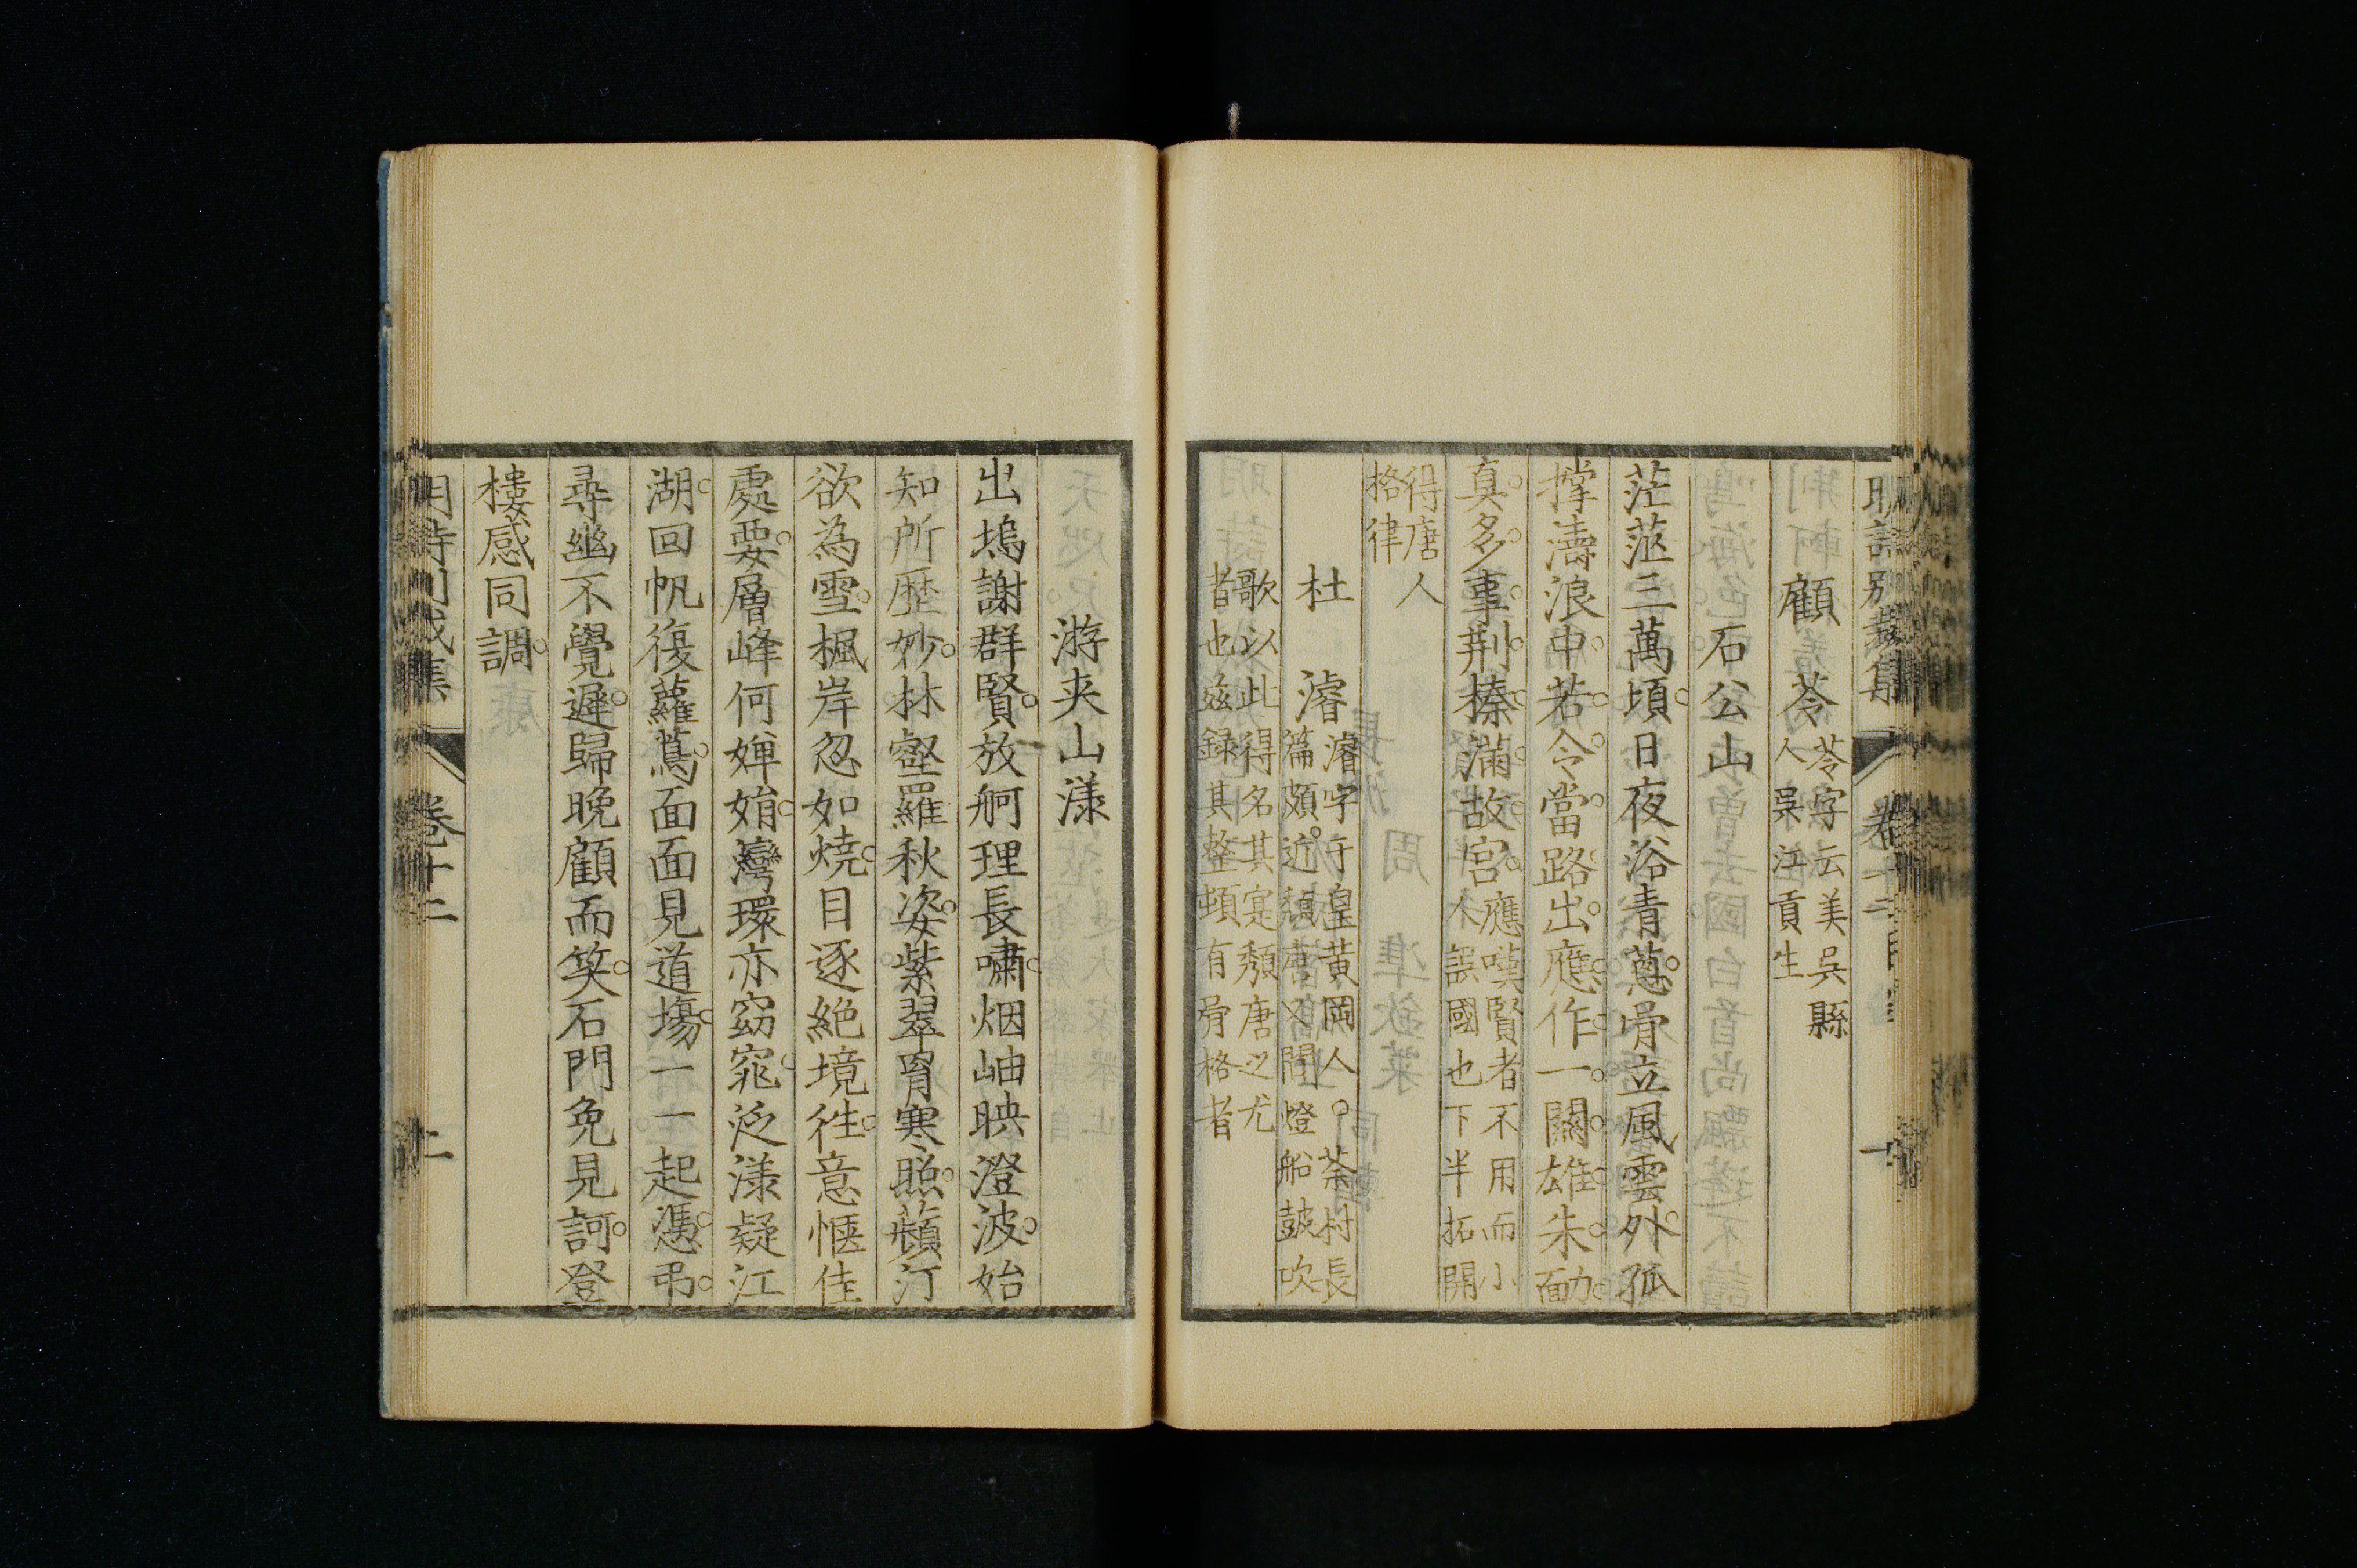 明詩別裁集 卷十二 一
顧苓 苓字云美吳縣
人吳江貢生
石公山
茫茫三萬頃日夜浴青蔥骨立風雲外孤
撐濤浪中若令當路出應作一關雄朱勔
真多事荊榛滿故宮 應嘆賢者不用而小
人誤國也下半拓開
得唐人
格律
杜濬 濬字于皇黃岡人。茶村長
篇頗近頹唐之間燈船鼓吹
歌以此得名其寔頹唐之尤
者也茲錄其整頓有骨格者
游夾山漾
出塢謝群賢放舸理長嘯烟岫映澄波始
知所歷妙林壑羅秋姿紫翠胥寒照蘋汀
欲為雪楓岸忽如燒目逐絕境徃意愜佳
處要層峰何嬋娟灣環亦窈窕泛漾疑江
湖回帆復蘿蔦面面見道塲一一起憑弔
尋幽不覺遲歸晚顧而笑石門免見訶登
樓感同調
明詩別裁集 卷十二 二